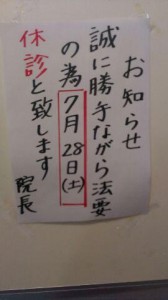 お知らせ
誠に勝手ながら法要
の為7月28日(土)
休診と致します
院長